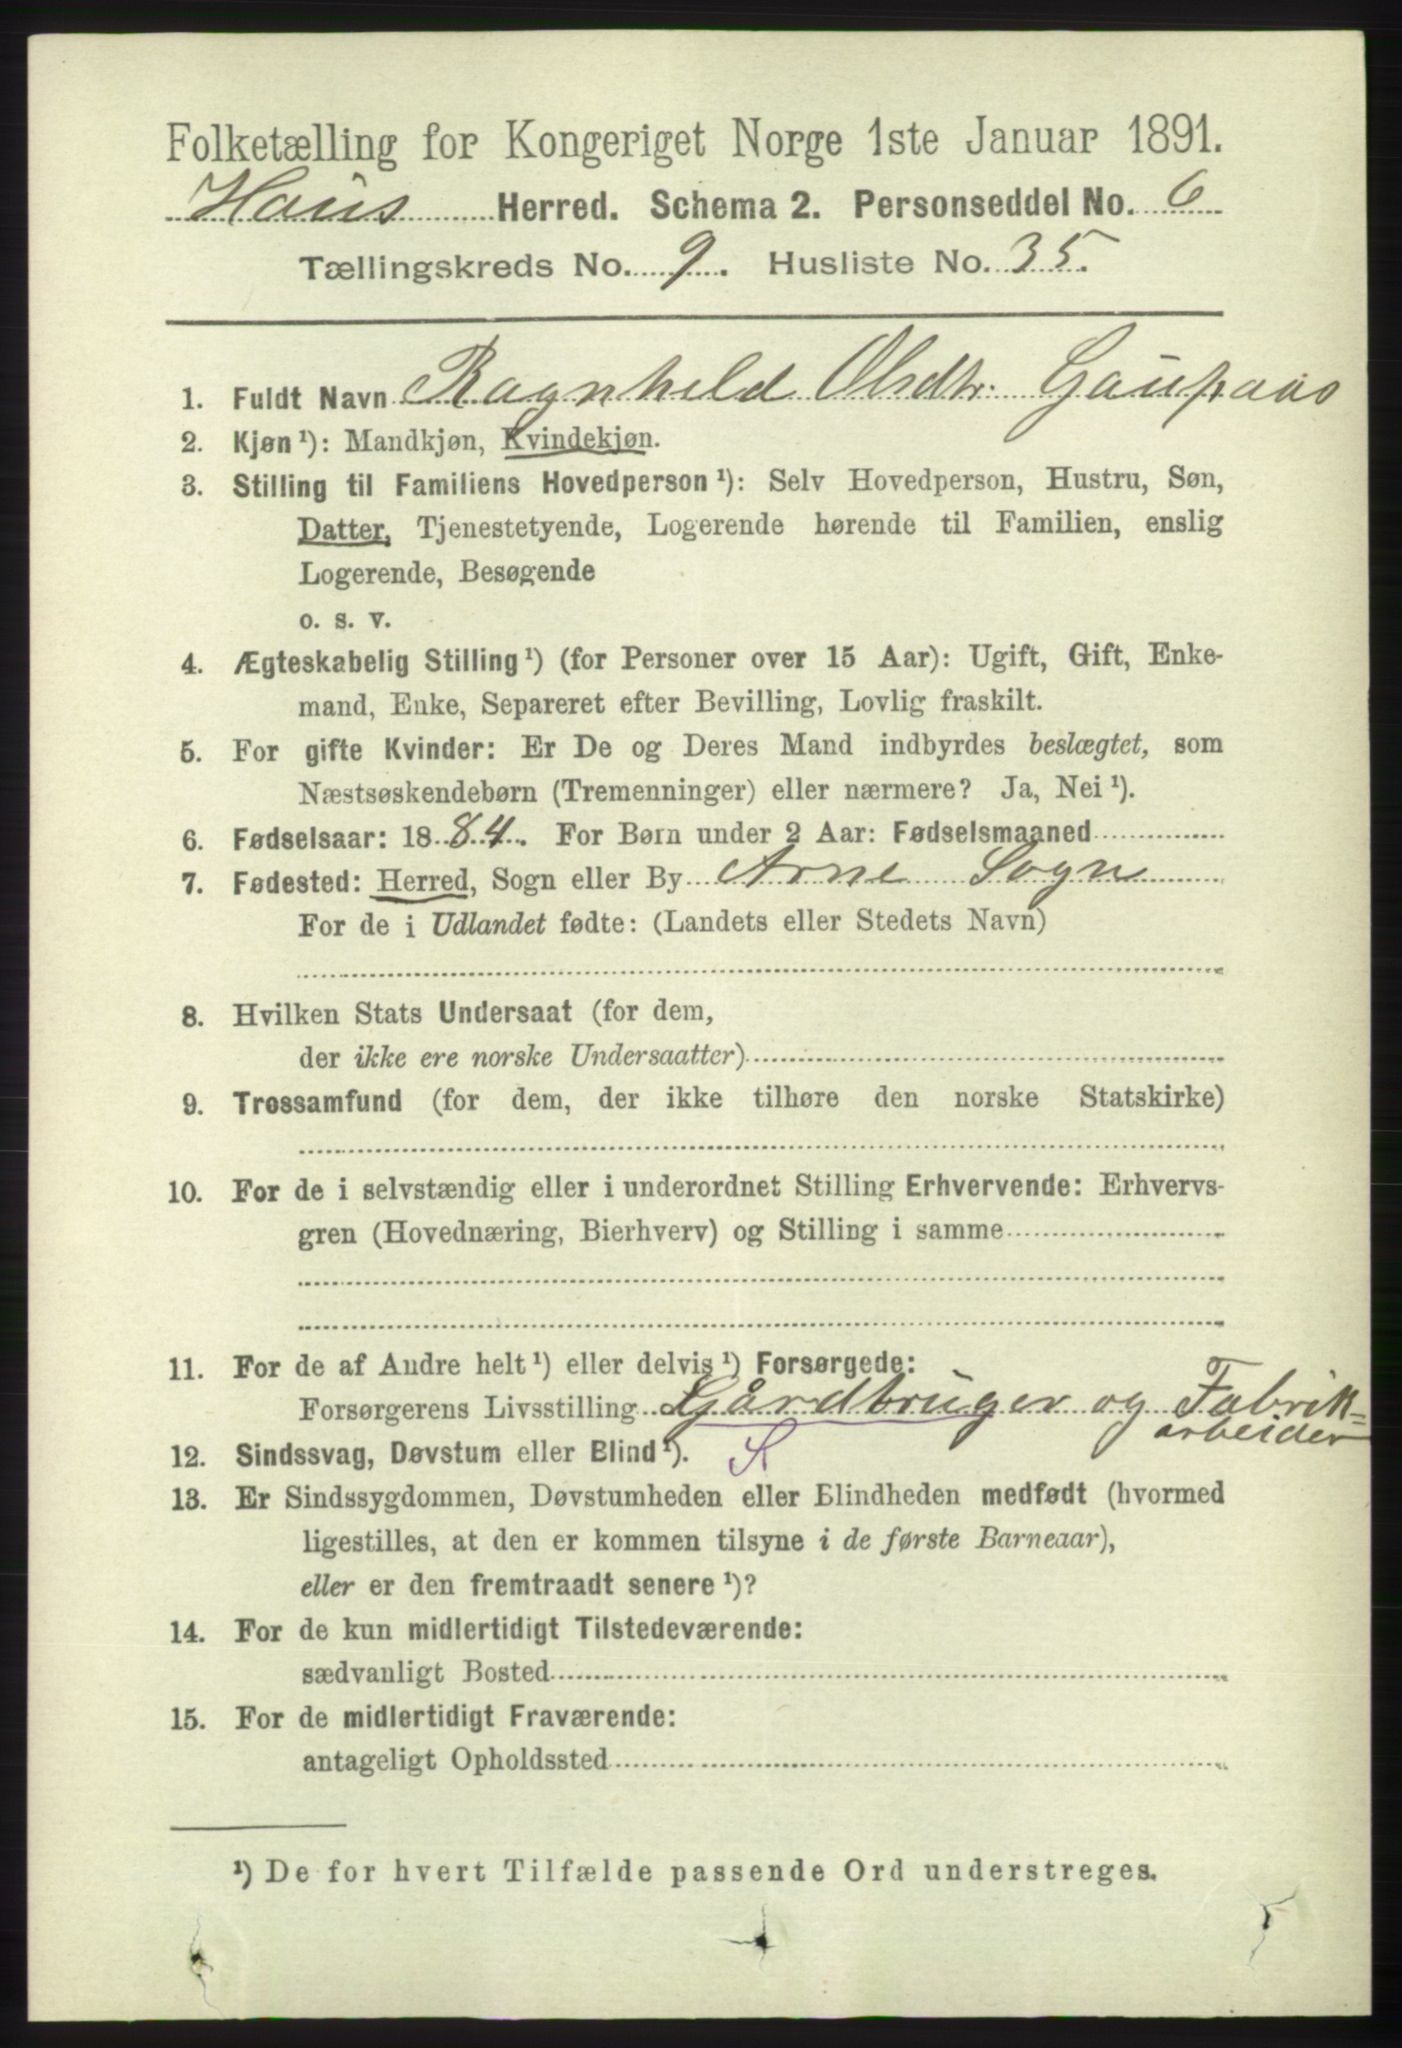 Folketælling for Kongeriget Norge 1ste Januar 1891.
Haus Herred. Schema 2. Personseddel No. 6
Tællingskreds No. 9. Husliste No. 35.
1. Fuldt Navn Ragnhild Olsdtr. Gaupaas
2. Kjøn ¹): Mandkjøn, Kvindekjøn.
3. Stilling til Familiens Hovedperson ¹): Selv Hovedperson, Hustru, Søn,
Datter, Tjenestetyende, Logerende hørende til Familien, enslig
Logerende, Besøgende
o. s. v.
4. Ægteskabelig Stilling ¹) (for Personer over 15 Aar): Ugift, Gift, Enke-
mand, Enke, Separeret efter Bevilling, Lovlig fraskilt.
5. For gifte Kvinder: Er De og Deres Mand indbyrdes beslægtet, som
Næstsøskendebørn (Tremenninger) eller nærmere? Ja, Nei ¹).
6. Fødselsaar: 1884. For Børn under 2 Aar: Fødselsmaaned
7. Fødested: Herred, Sogn eller By Arne Sogn
For de i Udlandet fødte: (Landets eller Stedets Navn)
8. Hvilken Stats Undersaat (for dem,
der ikke ere norske Undersaatter)
9. Trossamfund (for dem, der ikke tilhøre den norske Statskirke)
10. For de i selvstændig eller i underordnet Stilling Erhvervende: Erhvervs-
gren (Hovednæring, Bierhverv) og Stilling i samme
11. For de af Andre helt ¹) eller delvis ¹) Forsørgede:
Forsørgerens Livsstilling Gårdbruger og Fabrik=
arbeider
12. Sindssvag, Døvstum eller Blind ¹). S
13. Er Sindssygdommen, Døvstumheden eller Blindheden medfødt (hvormed
ligestilles, at den er kommen tilsyne i de første Barneaar),
eller er den fremtraadt senere ¹)?
14. For de kun midlertidigt Tilstedeværende:
sædvanligt Bosted
15. For de midlertidigt Fraværende:
antageligt Opholdssted
¹) De for hvert Tilfælde passende Ord understreges.